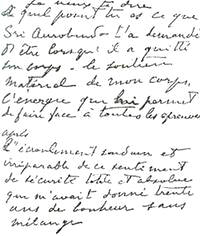 Tu veux te dire
de quel point tu as ce que
Sri Aurobindo t'a demandé
d'être lorsqu'il a quitté
son corps - le soutien
matériel de mon corps,
l'énergie qui permet
de faire face à toutes les épreuves
après
l'écroulement soudain et
irréparable de ce sentiment
de sécurité totale et absolue
qui m'avait donné trente
ans de bonheur sans
mélange